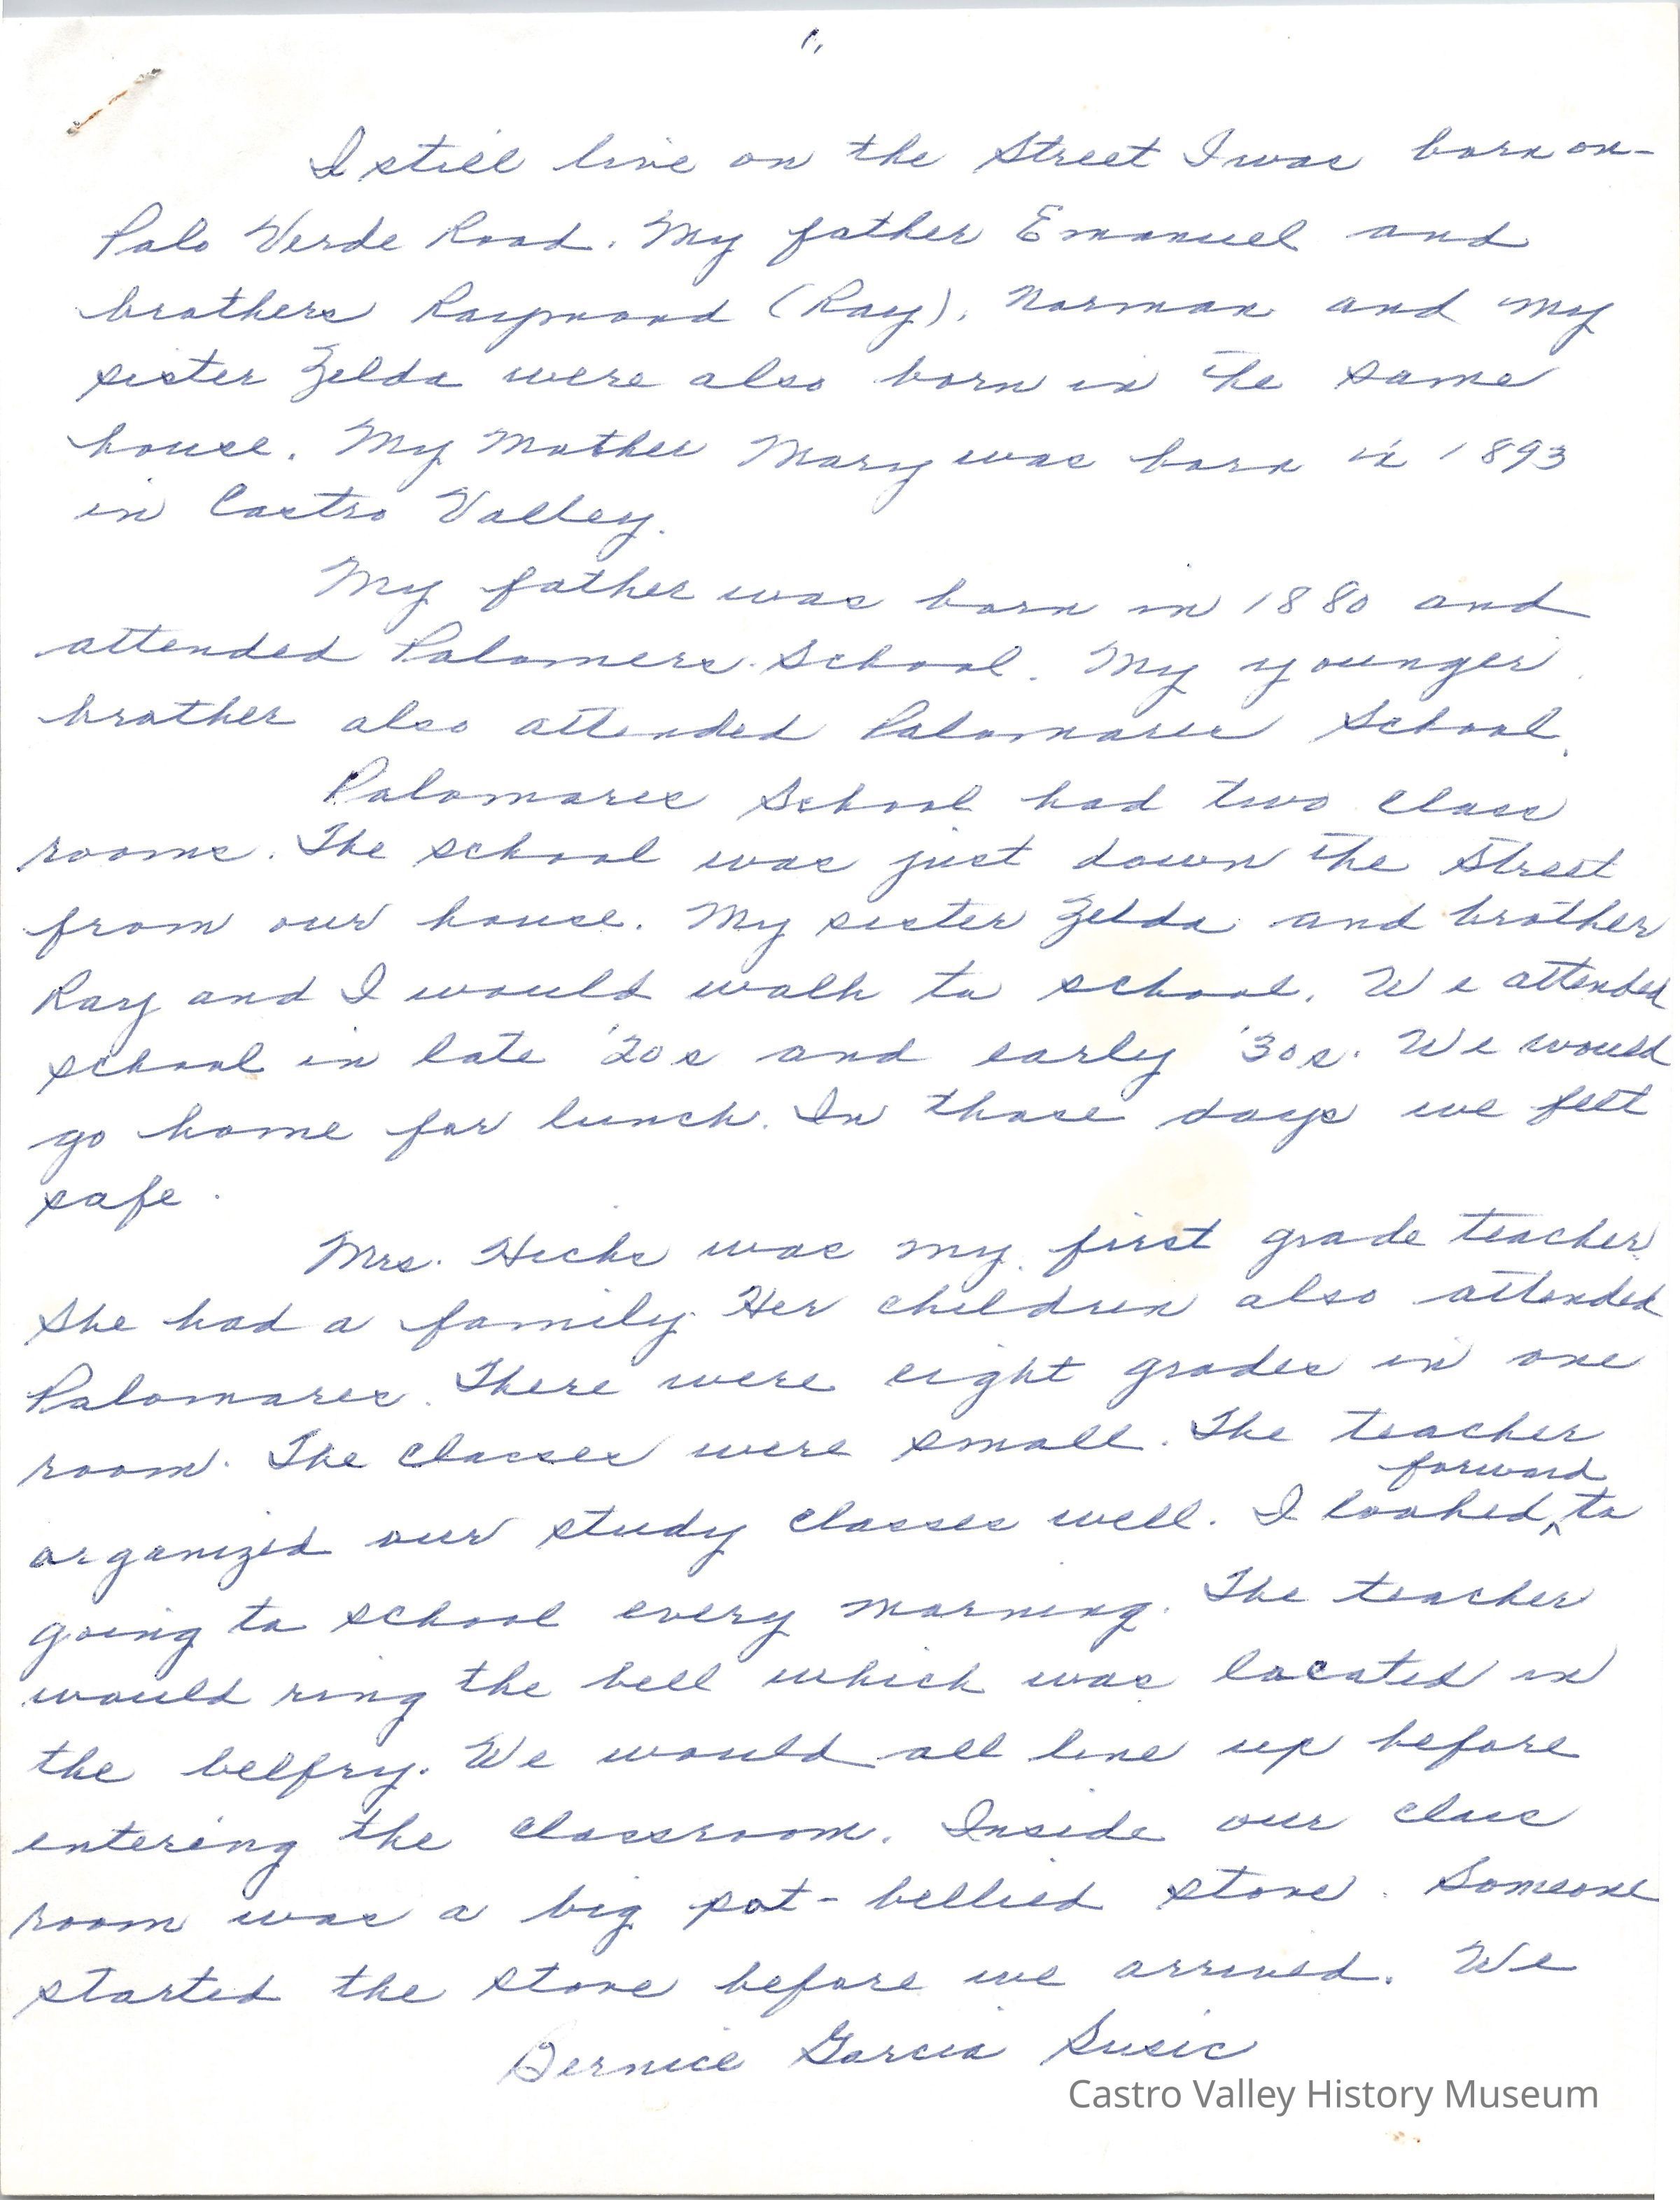 I still live on the Street I was born on-
Palo Verde Road. My father Emanuel and
brothers Raymond (Ray), Norman and my
sister Zelda were also born in the same
house. My Mother Mary was born in 1893
in Castro Valley.
My father was born in 1880 and
attended Palomares School. My younger
brother also attended Palomares School.
Palomares School had two class
rooms. The school was just down the Street
from our house. My sister Zelda and brother
Ray and I would walk to school. We attended
school in late '20s and early '30s. We would
go home for lunch. In those days we felt
safe.
Mrs. Hicks was my first grade teacher.
She had a family. Her children also attended
Palomares. There were eight grades in one
room. The classes were small. The teacher
organized our study classes well. I looked forward to
going to school every morning. The teacher
would ring the bell which was located in
the belfry. We would all line up before
entering the classroom. Inside our class
room was a big pot-bellied stove. Someone
started the stove before we arrived. We
Bernice Garcia Susic
Castro Valley History Museum